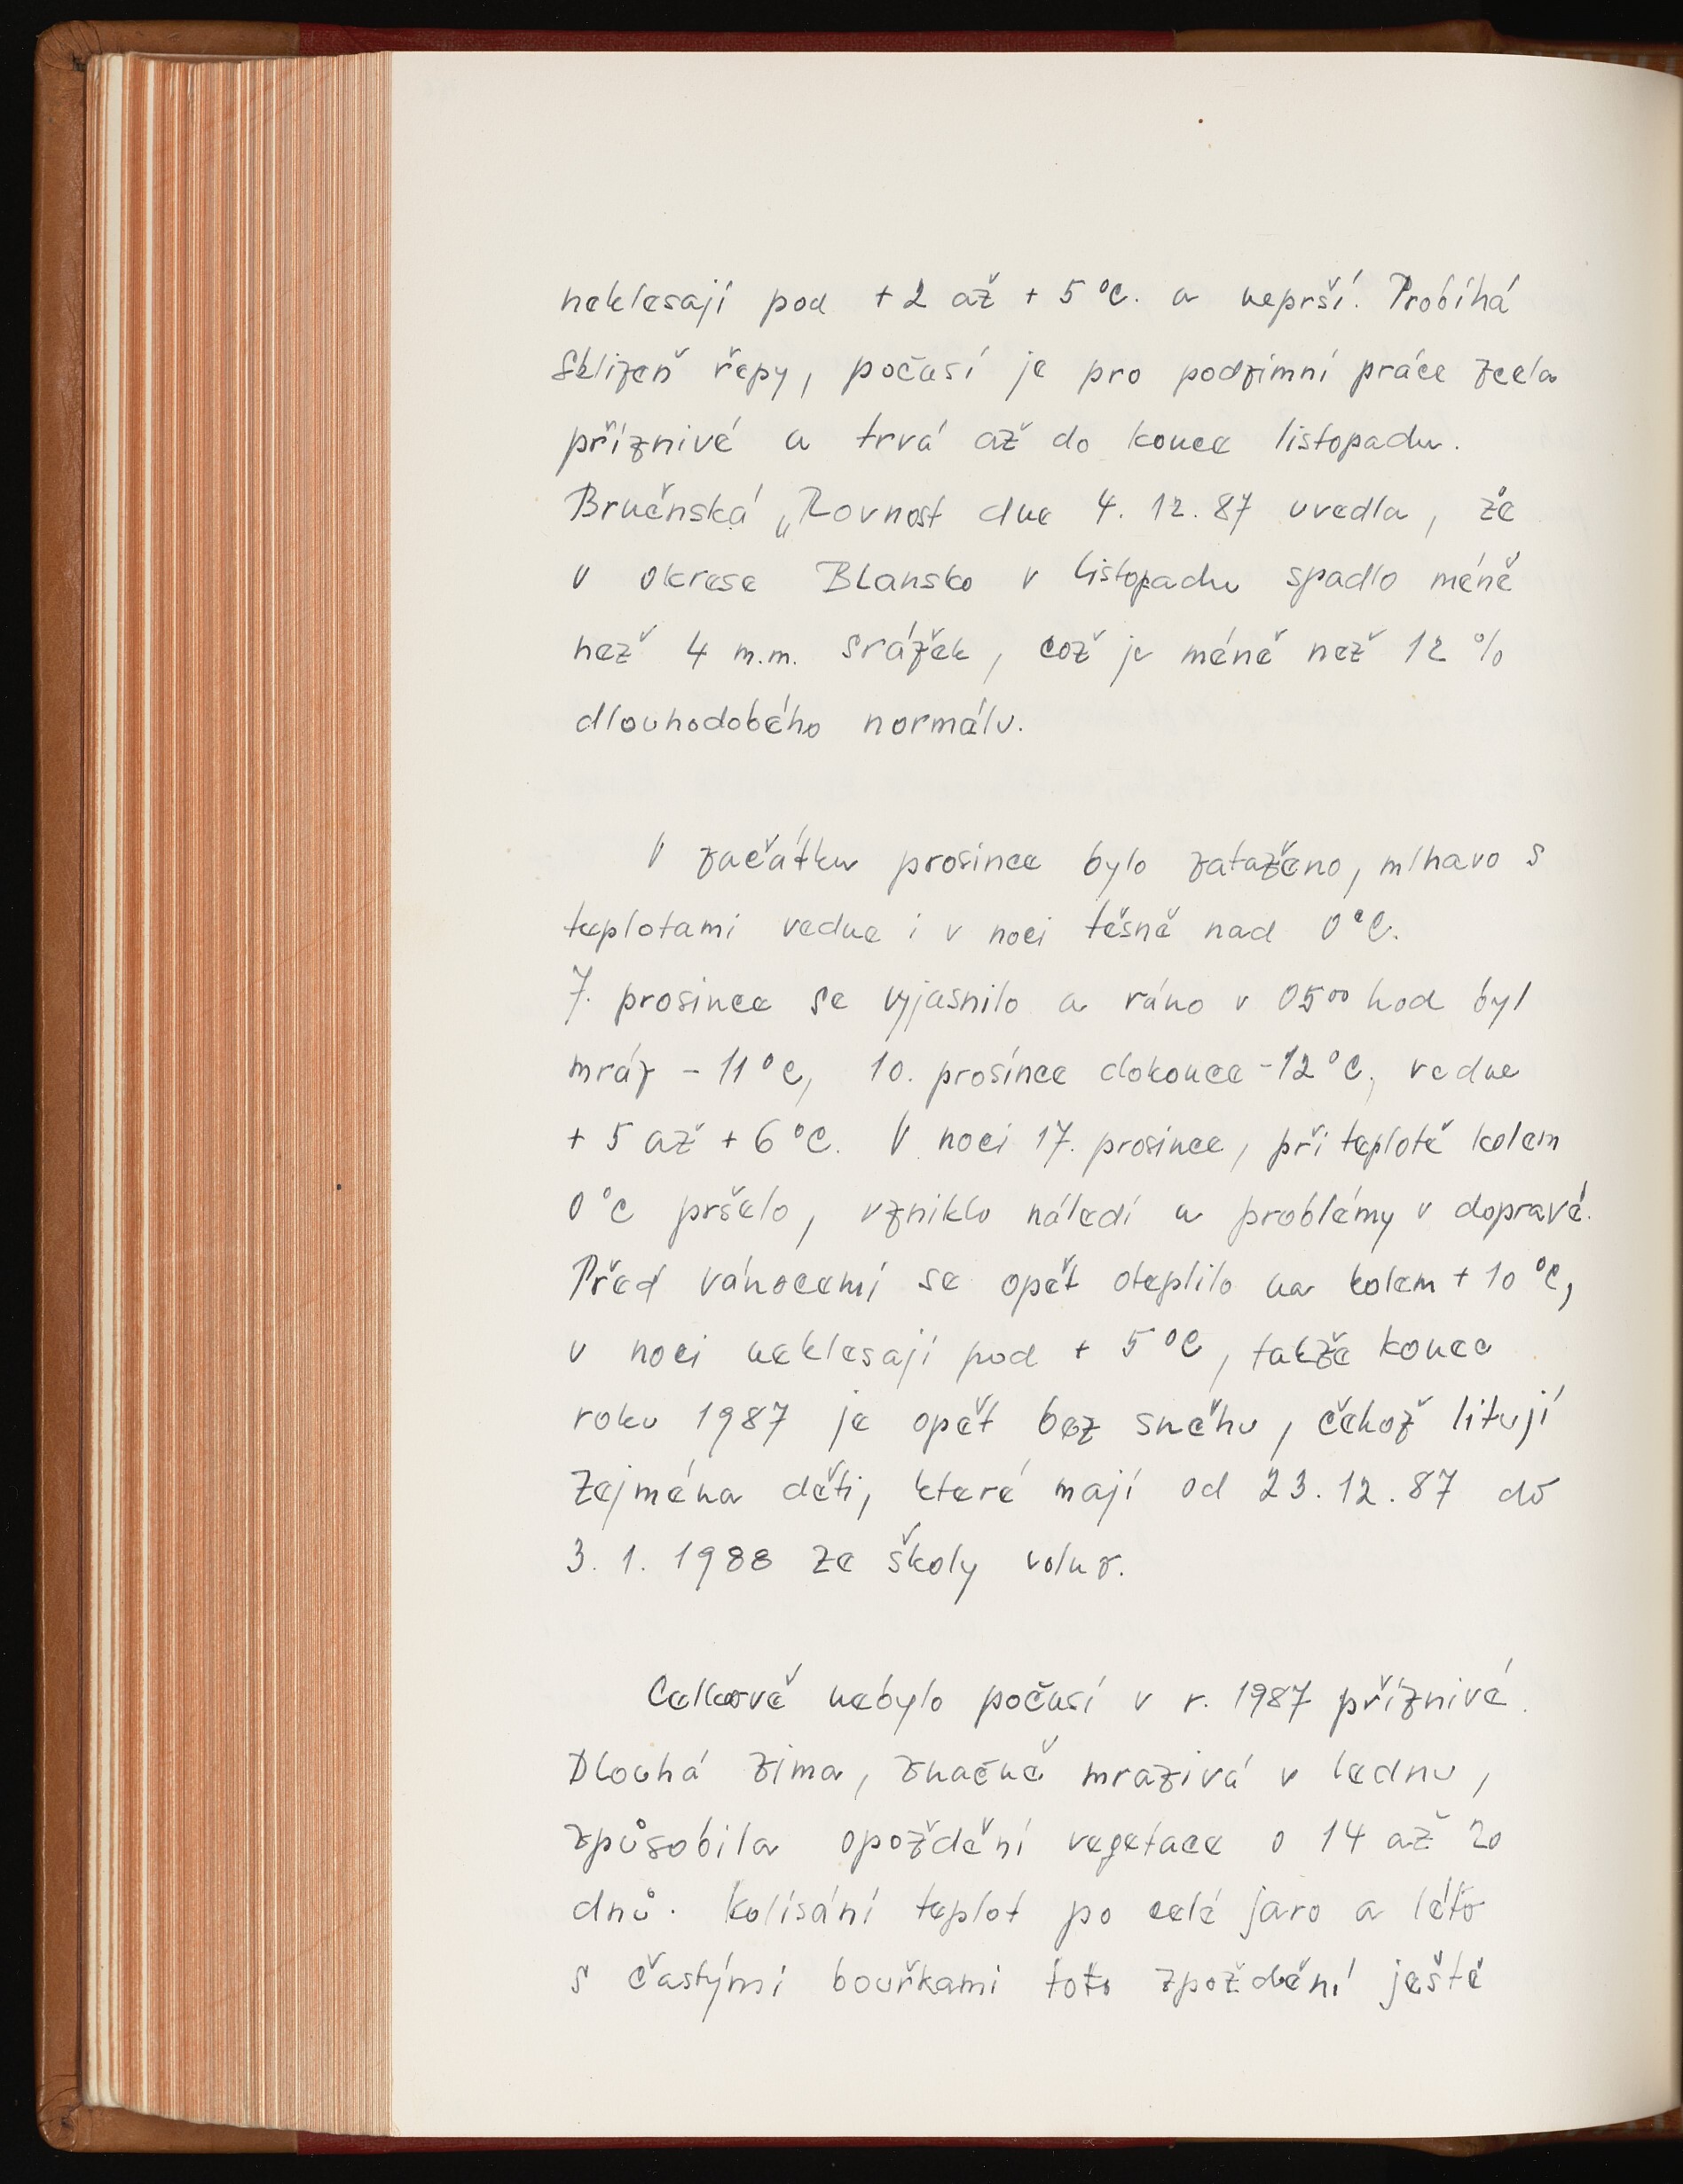 neklesají pod +2 až +5 °C. a neprší. Probíhá
sklizeň řepy, počasí je pro podzimní práce zcela
příznivé a trvá až do konce listopadu.
Brněnská „Rovnost dne 4. 12. 87 uvedla, že
v okrese Blansko v listopadu spadlo méně
než 4 m.m. srážek, což je méně než 12 %
dlouhodobého normálu.
V začátku prosince bylo zataženo, mlhavo s
teplotami vedne i v noci těsně nad 0 °C.
7. prosince se vyjasnilo a ráno v 05⁰⁰ hod byl
mráz - 11 °C, 10. prosince dokonce -12 °C, vedne
+ 5 až + 6 °C. V noci 17. prosince, při teplotě kolem
0 °C pršelo, vzniklo náledí a problémy v dopravě.
Před vánocemi se opět oteplilo na kolem + 10 °C,
v noci neklesají pod + 5 °C, takže konec
roku 1987 je opět bez sněhu, čehož litují
zejména děti, které mají od 23. 12. 87 do
3. 1. 1988 ze školy volno.
Celkově nebylo počasí v r. 1987 příznivé.
Dlouhá zima, značně mrazivá v lednu,
způsobila opoždění vegetace o 14 až 20
dnů. Kolísání teplot po celé jaro a léto
s častými bouřkami toto zpoždění ještě